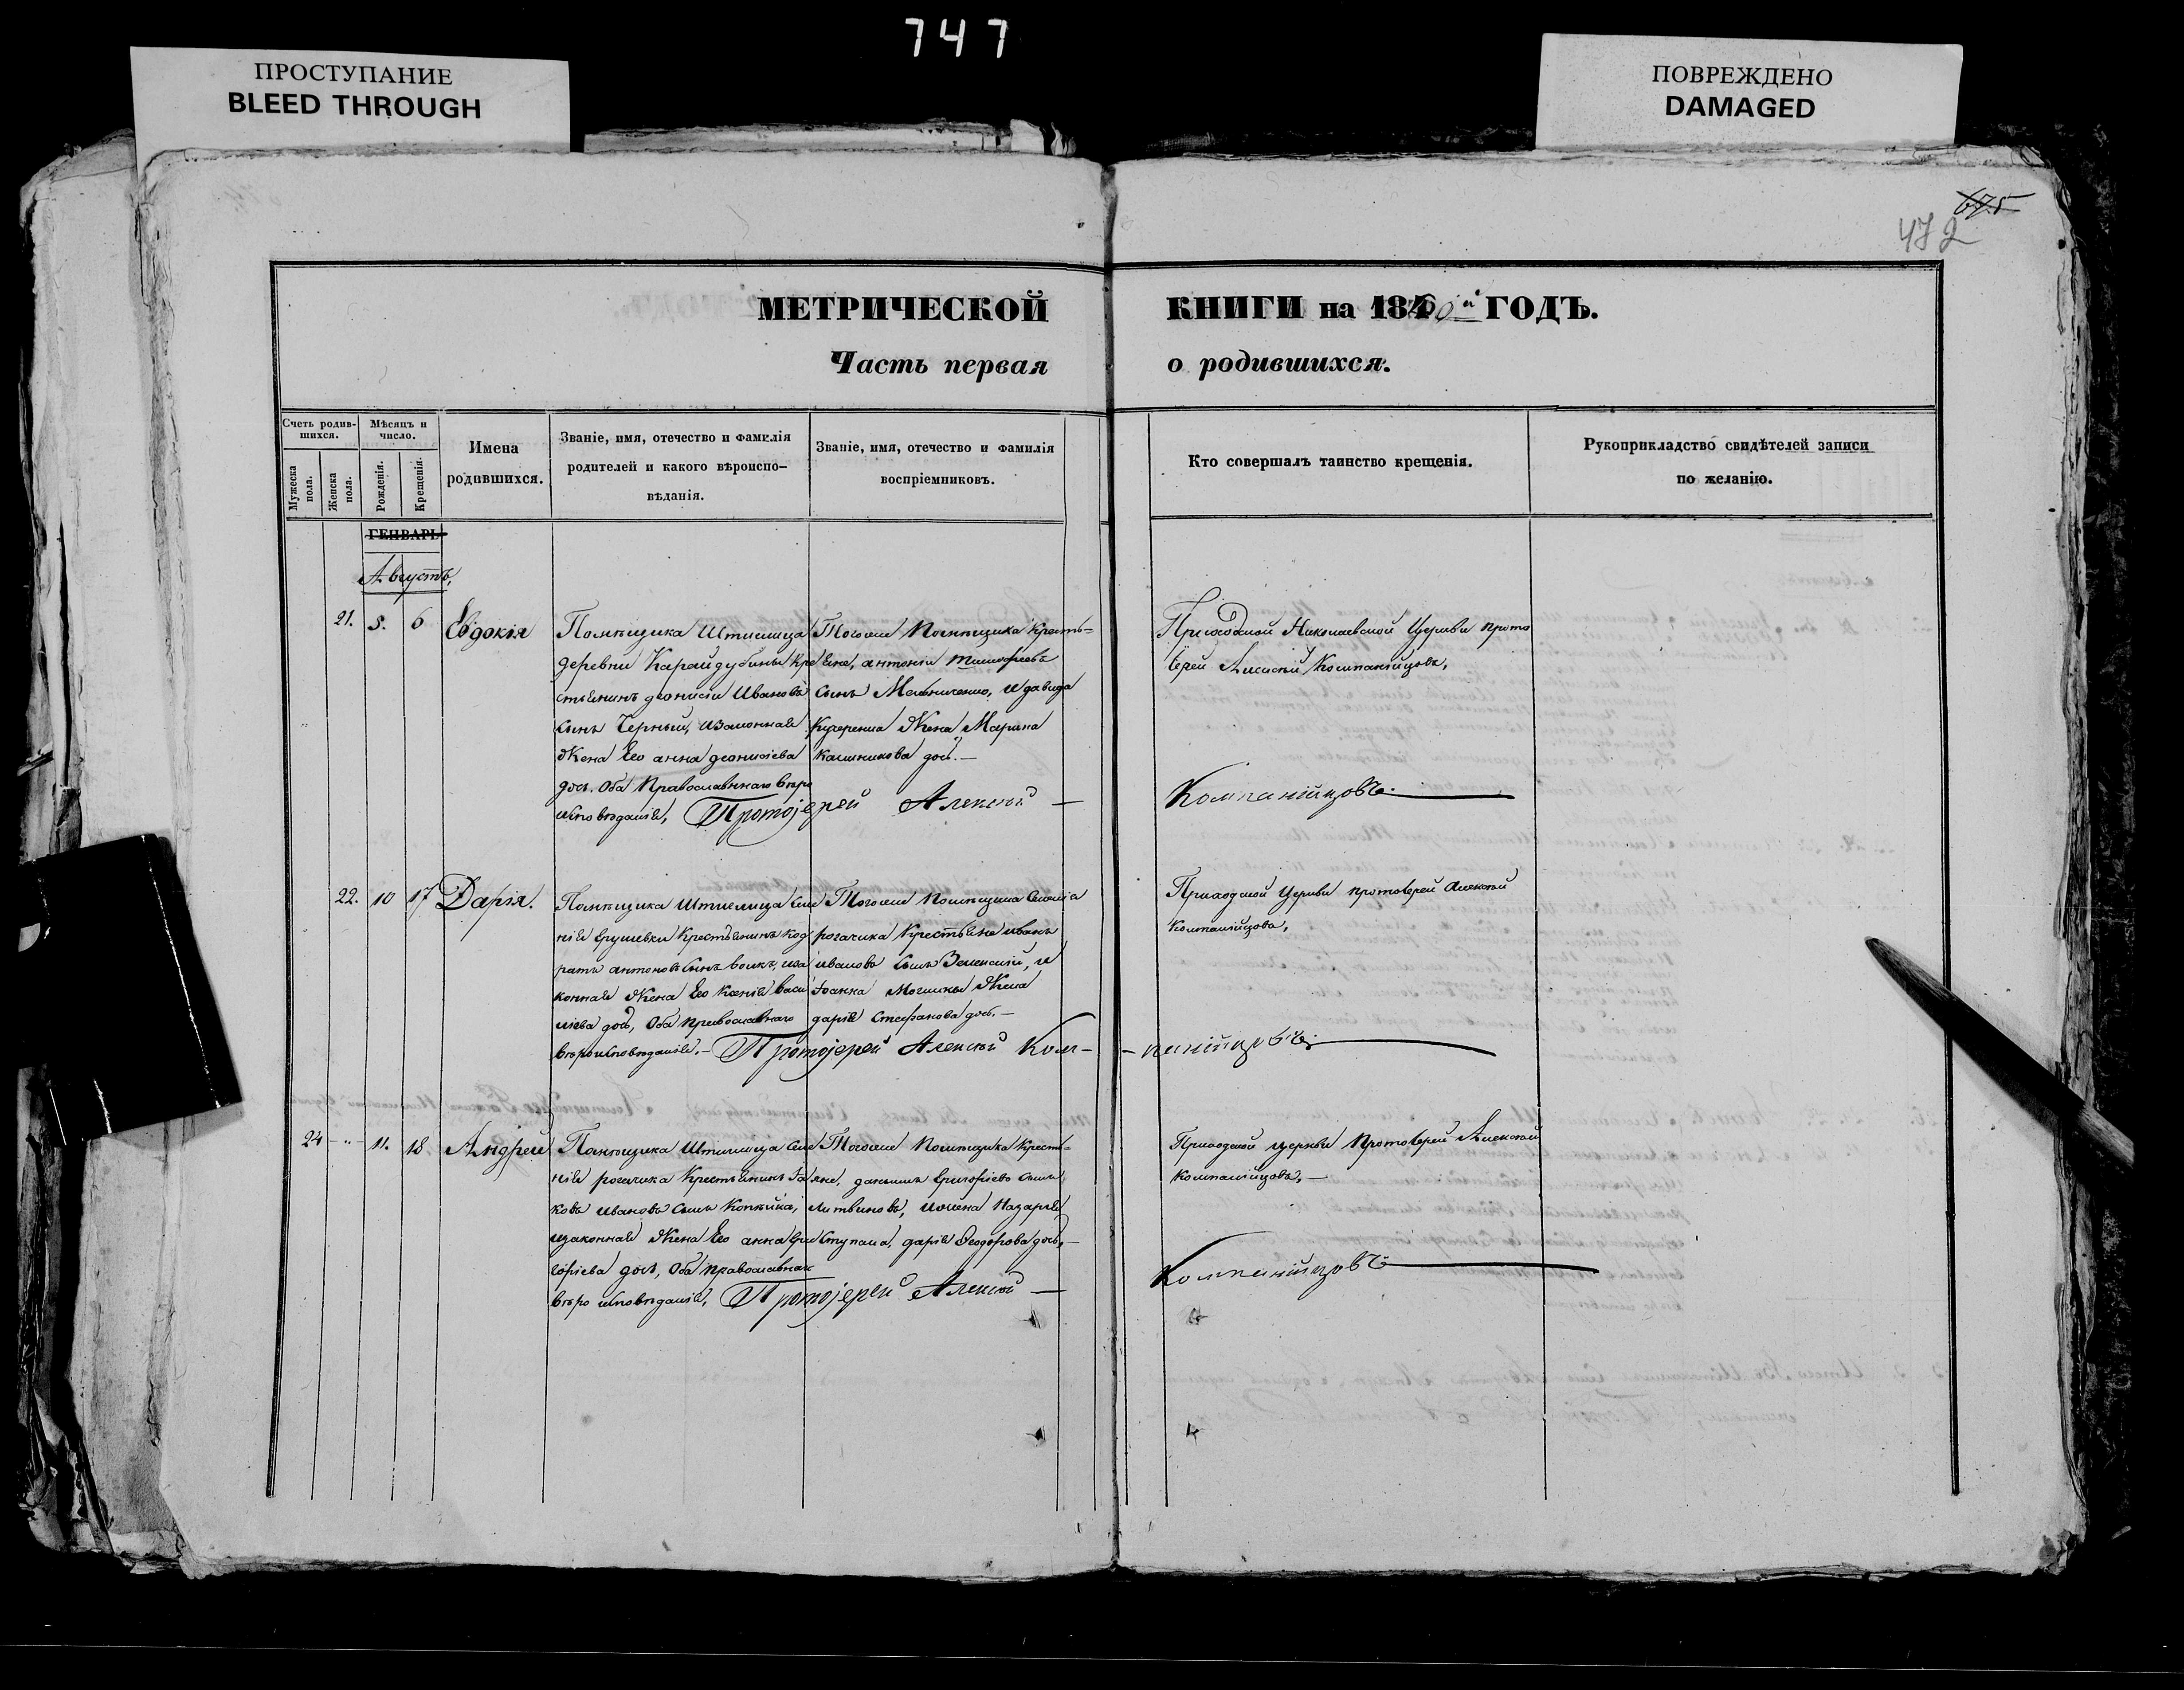 747
ПРОСТУПАНИЕ
BLEED THROUGH
ПОВРЕЖДЕНО
DAMAGED
675
472
МЕТРИЧЕСКОЙ КНИГИ на 1840й ГОДЪ.
Часть первая о родившихся.
Счетъ родив-
шихся.
Мужеска пола.
Женска пола.
Мѣсяцъ и
число.
Рожденія.
Крещенія.
Имена
родившихся.
Званіе, имя, отечество и фамилія
родителей и какого вѣроиспо-
вѣданія.
Званіе, имя, отечество и фамилія
воспріемниковъ.
Кто совершалъ таинство крещенія.
Рукоприкладство свидѣтелей записи
по желанію.
ГЕНВАРЬ
Августъ,
21. 5. 6 Евдокія
Помѣщика Штиглица
деревни Карайдубины Кре
стьянинъ деонисій Ивановъ
сынъ Черный, Изаконная
Жена Его анна деонисіева
дочь. Оба Православнаго вѣро
исповѣданія,
Тогоже Помѣщика Кресть=
яне, антоній тимофѣевъ
сынъ Мельниченко, и давида
Жена Марина
дочь.—
Приходской Николаевской Церкви прото
іерей Алексій Компанійцовъ,
Протоjерей Алексѣй — Компанійцовъ
22. 10 17 Дарія.
Помѣщика Штиглица
Крестьянинъ Код
ратъ антоновъ сынъ волкъ, иза
конная Жена Его Ксенія васи
ліева дочь, Оба православнаго
вѣроисповѣданія.—
Тогоже Помѣщика
рогачика Крестьяне иванъ
ивановъ сынъ Зеленскій, и
Жена
дарія Стефанова дочь.—
Приходской Церкви протоіерей Алексѣй
Компанійцовъ,
Протоjерей Алексѣй Ком-
-панійцовъ
24 — " — 11. 18 Андрей
Помѣщика Штиглица Селе
нія рогачика Крестьянинъ Іа
ковъ ивановъ сынъ Копѣйка,
изаконная Жена Его анна Гри
горіева дочь, Оба православнаго
вѣро исповѣданія,
Тогоже Помѣщика Кресть=
яне, данилъ григоріевъ сынъ
литвиновъ, ижена Назарія
Ступака, дарія Феодорова дочь,—
Приходской церкви Протоіерей Алексѣй
Компанійцовъ,—
Протоjерей Алексѣй —
Компанійцовъ